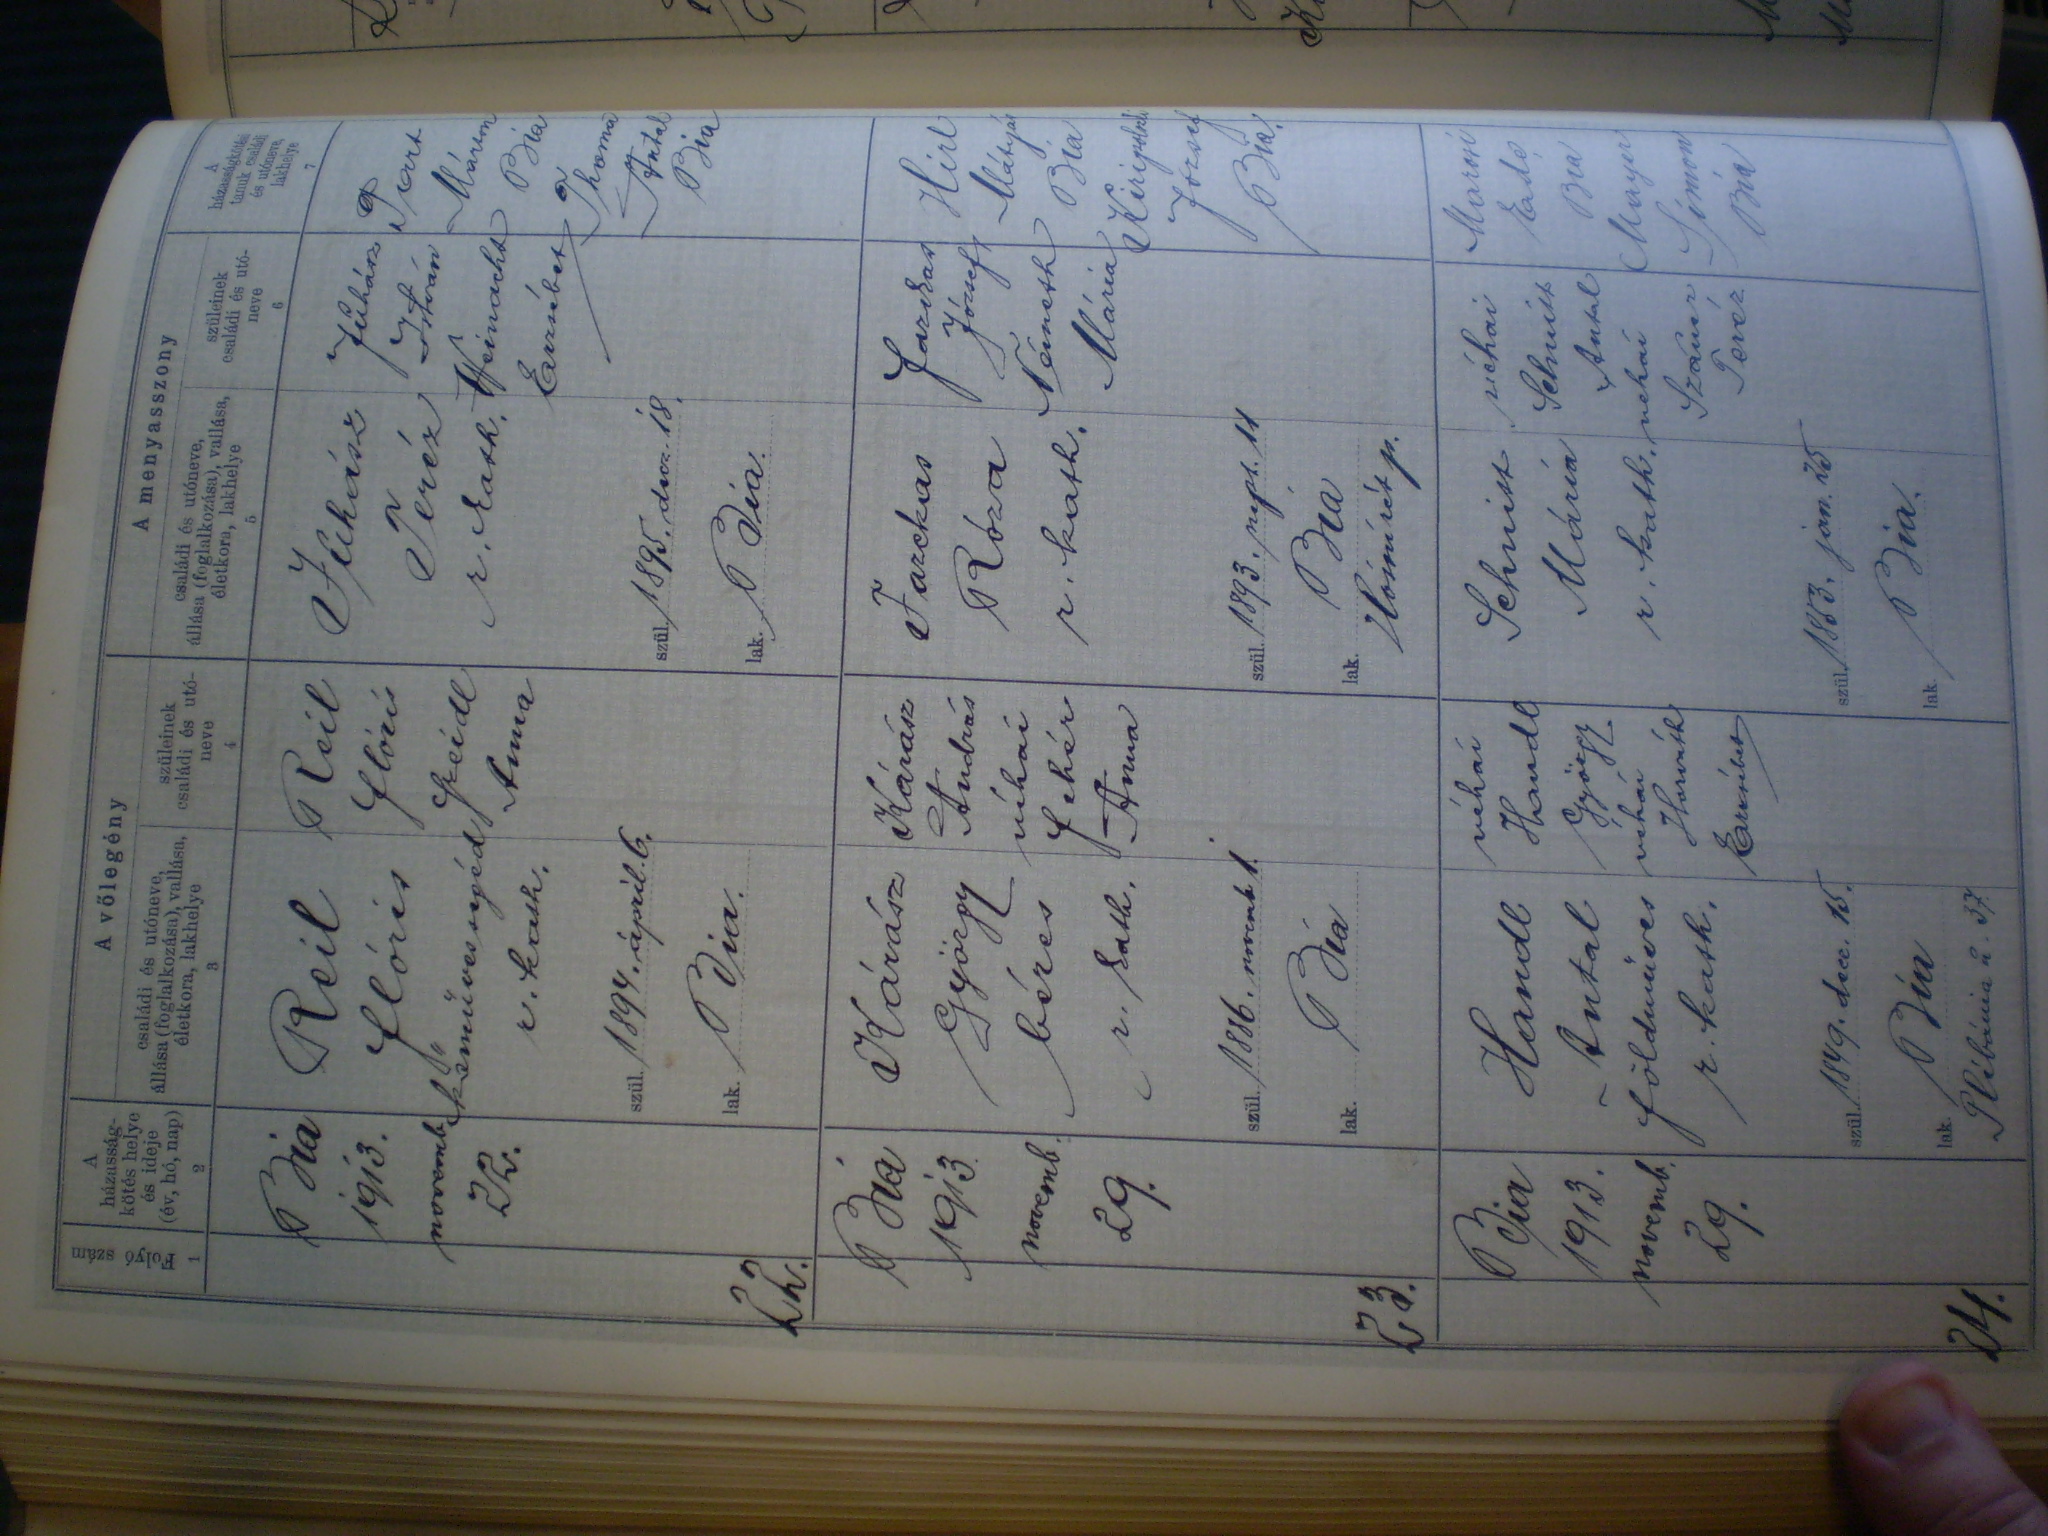 A võlegény
A menyasszony
Folyó
szám
A
házasság-
kötés helye
és ideje
(év, hó, nap)
családi és utóneve,
állása (foglalkozása), vallása,
életkora, lakhelye
szüleinek
családi és utó-
neve
családi és utóneve,
állása (foglalkozása), vallása,
életkora, lakhelye
szüleinek
családi és utó-
neve
A
házasságkötési
tanuk családi
és utóneve,
lakhelye
1
2
3
4
5
6
7
22.
Bia
1913.
novemb.
22.
Reil
Flóris
kőművessegéd
r. kath.
szül. 1894. ápril. 6.
lak. Bia.
Reil
Flóris
Szeidl
Anna
Juhász
Teréz
r. kath.
szül. 1895. decz. 18.
lak. Bia.
Juhász
István
Weinacht
Erzsébet
Márton
Bia
Thoma
Antal
Bia
23.
Bia
1913.
novemb.
29.
Kárász
György
béres
r. kath.
szül. 1886. novemb 1.
lak. Bia
Kárász
András
néhai
Fehér
Anna
Farkas
Róza
r. kath.
szül. 1893. sept. 11
lak. Bia
Farkas
József
Németh
Mária
Hirl
Mátyás
Bia
József
Bia.
24.
Bia
1913.
novemb.
29.
Handl
Antal
földműves
r. kath.
szül. 1849. decz. 15.
lak. Bia
Plébánia u. 37.
néhai
Handl
György
néhai
Horváth
Erzsébet
Schmitt
Mária
r. kath.
szül. 1853. jan. 25
lak. Bia.
néhai
Schmitt
Antal
néhai
Teréz
Marosi
Bia
Mayer
Simon
Bia